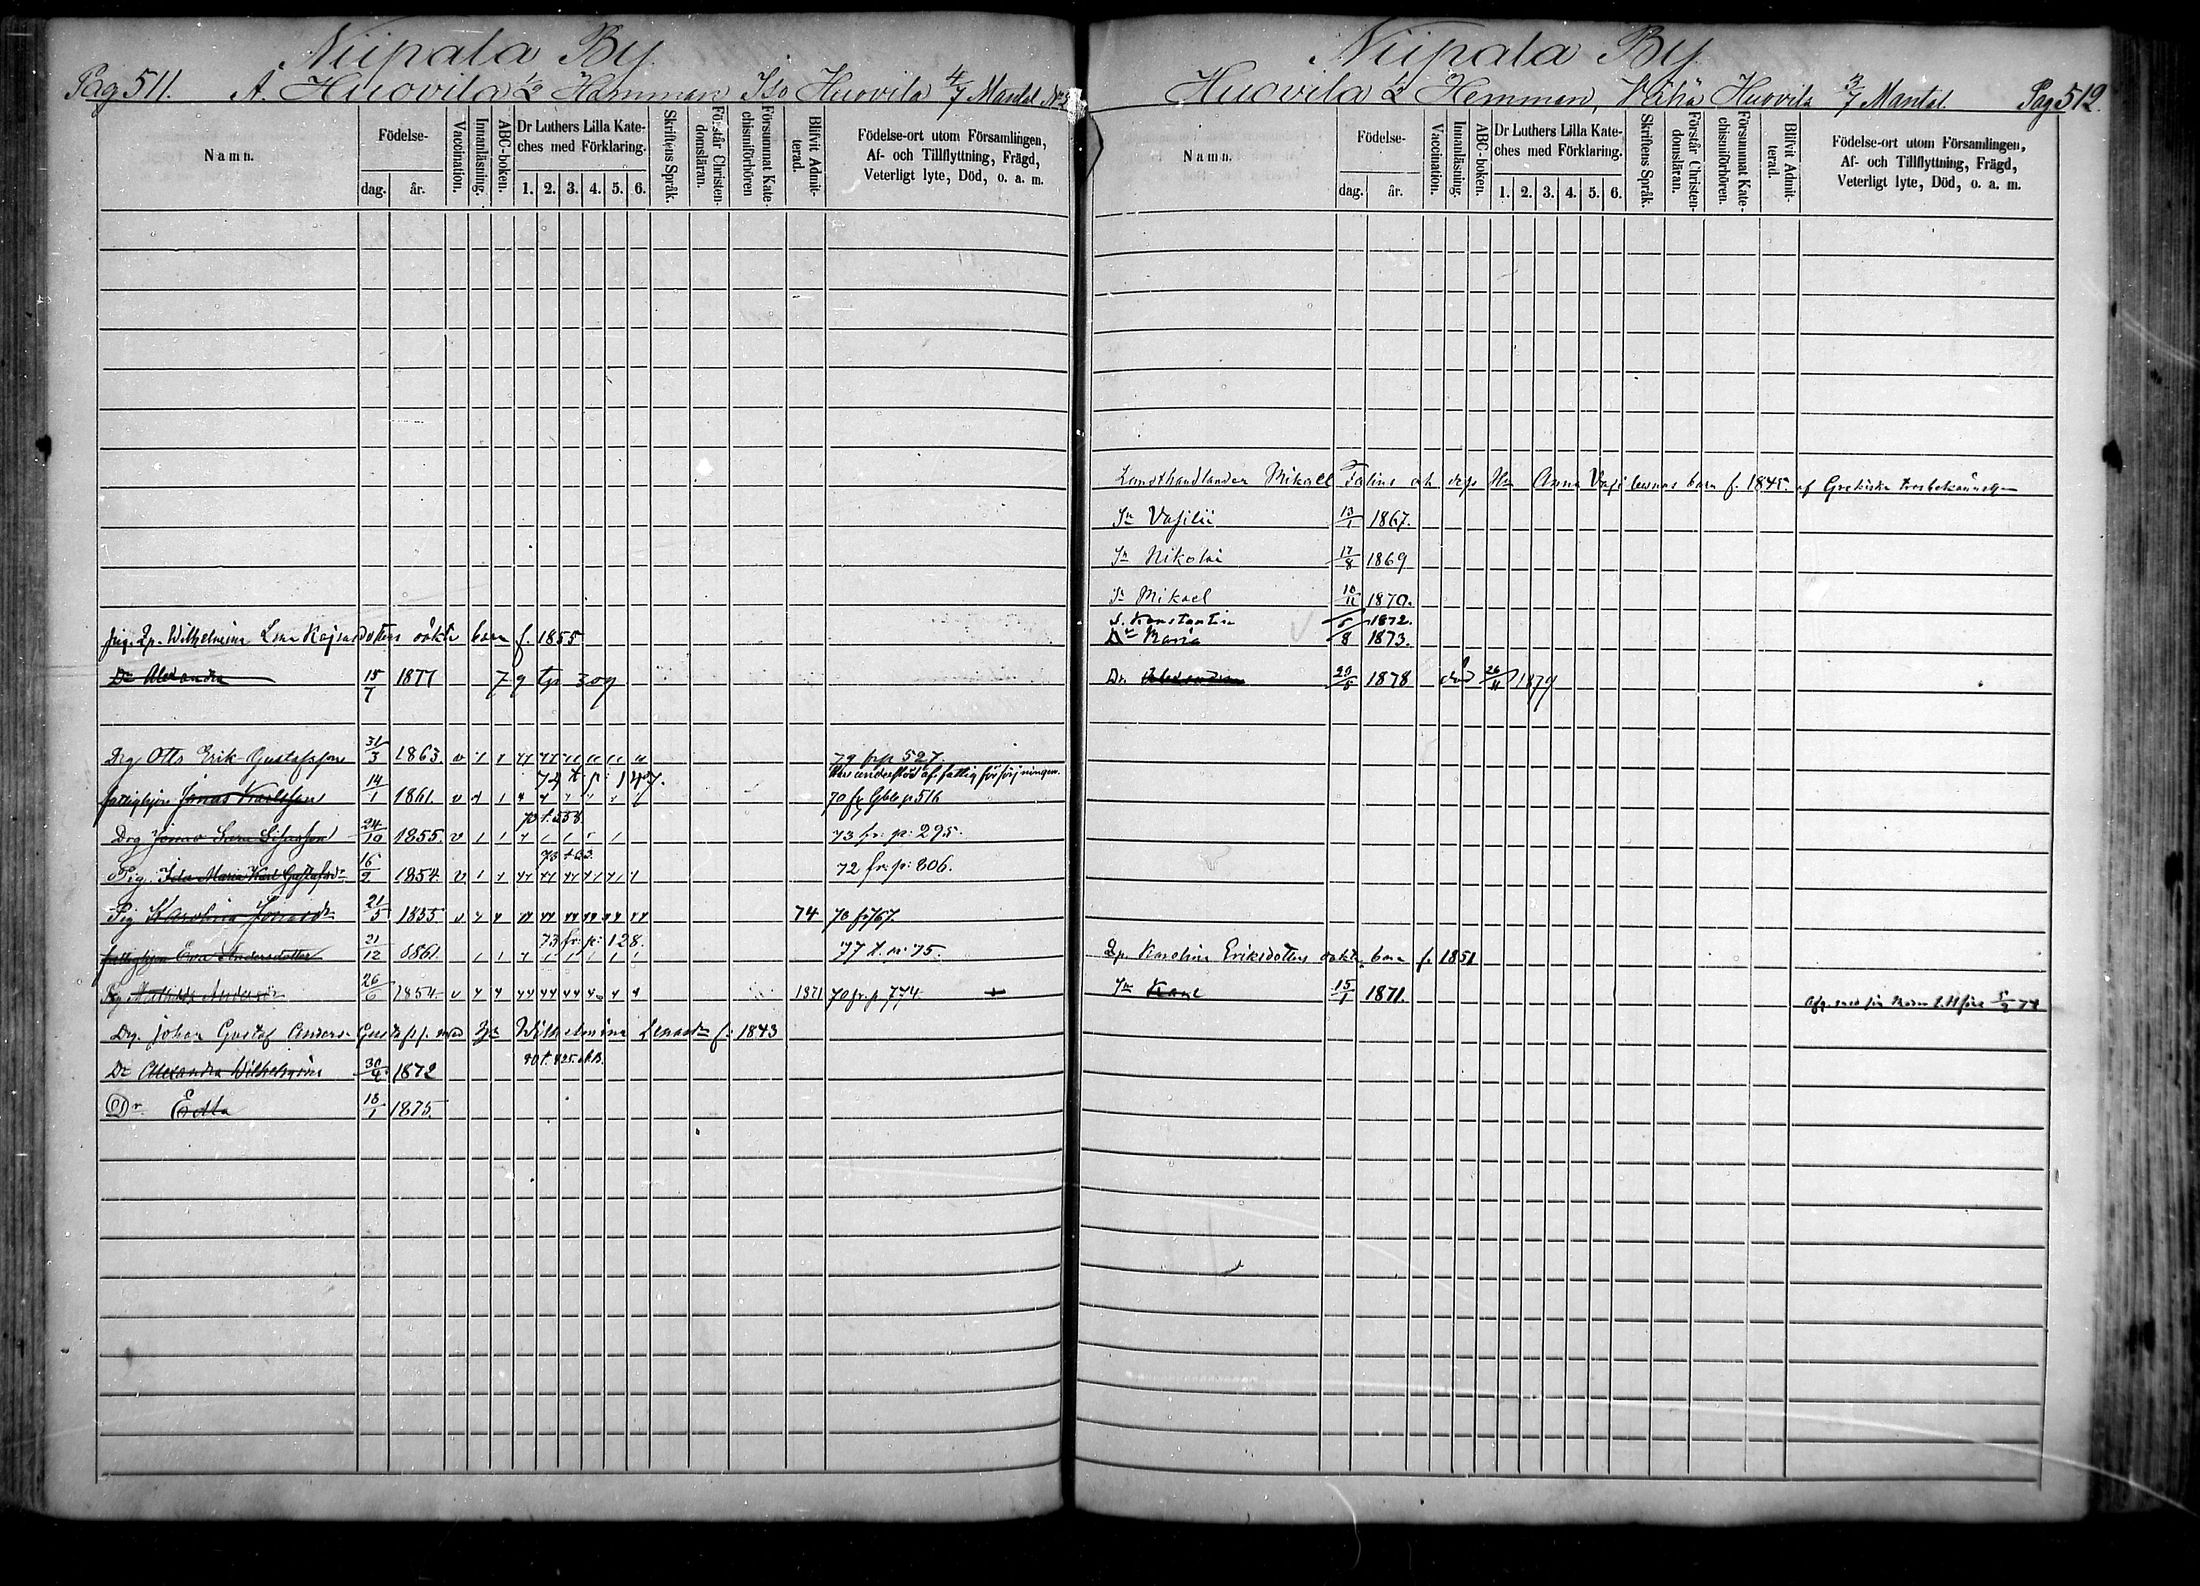 Niipala By.
Pag 511. A. Huovila ½ Hemman Iso Huovila 4/7 Mantal
Namn.
Födelse-
dag. år.
Vaccination.
Innanläsning.
ABC-boken.
Dr Luthers Lilla Kate-
ches med Förklaring.
1. 2. 3. 4. 5. 6.
Skriftens Språk.
Förstår Christen-
domsläran.
Försummat Kate-
chismiförhören
Blifvit Admit-
terad.
Födelse-ort utom Församlingen,
Af- och Tillflyttning, Frägd,
Veterligt lyte, Död, o. a. m.
Wilhelmina Lena Kajsadotters oäkta barn f. 1855
Dr Alexandra 15/7 1877 79 tp 309
Drg Otto Erik Gustafsson 31/3 1863 v 79 frp 527.
af fattigförsörjningen.
Jonas Karlsson 14/1 1861 v 70 fr Gbb p 516
Drg Jonas 24/10 1855 v 73 fr: p: 295.
Pig. Ida Maria Karl Gustafsdr 16/2 1854 v 72 fr: p: 806.
Pig Karolina Jonasdr 21/5 1855 v 74 70 f 767
73 fr: p: 128.
fattighjon Eva Andersdotter 21/12 1861 77 t. p: 75.
Pig Mathilda Andersdr 26/6 1854 v 1871 70 fr. p 774
Drg. Johan Gustaf Anders Gustafss. med Wilhelmina Lenasdr f: 1843
Dr Alexandra Wilhelmina 30/4 1872
Dr Edla 18/1 1875.
Niipala By
Huovila ½ Hemman, Vähä Huovila 3/7 Mantal. Pag 512.
Namn.
Födelse-
dag. år.
Vaccination.
Innanläsning.
ABC-boken.
Dr Luthers Lilla Kate-
ches med Förklaring.
1. 2. 3. 4. 5. 6.
Skriftens Språk.
Förstår Christen-
domsläran.
Försummat Kate-
chismiförhören.
Blifvit Admit-
terad.
Födelse-ort utom Församlingen,
Af- och Tillflyttning, Frägd,
Veterligt lyte, Död, o. a. m.
Landthandlanden Mikael och dess Hu Anna barn f. 1845. af Grekiska trosbekännelsen
Sn Vasilii 13/1 1867.
Sn Nikolai 17/8 1869
Sn Mikael 10/11 1870.
S. Konstantin 1872.
Dr Maria 8 1873.
Dr. Alexandra 20/5 1878 död 26/11 1879
Karolina Eriksdotters oäkta barn f. 1851
Sn Karl 15/1 1871.